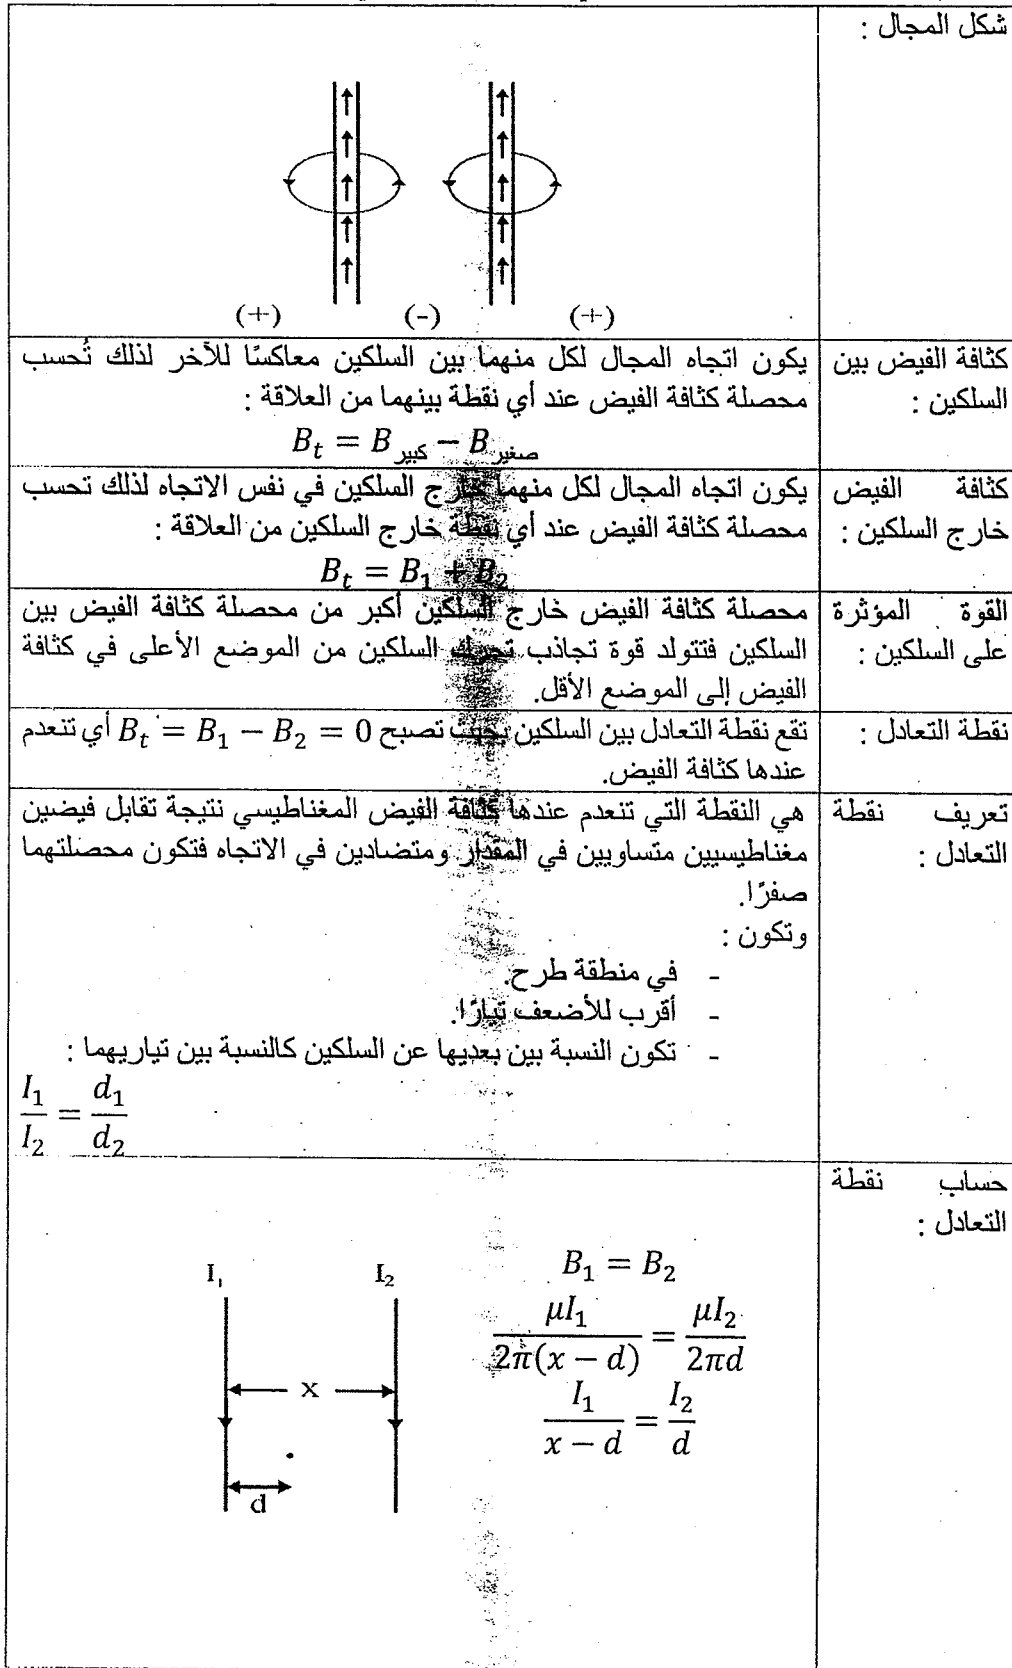 شكل المجال :
(+) (-) (+)
كثافة الفيض بين السلكين :
يكون اتجاه المجال لكل منهما بين السلكين معاكسًا للآخر لذلك تُحسب
محصلة كثافة الفيض عند أي نقطة بينهما من العلاقة :
B_t = B_كبير − B_صغير
كثافة الفيض خارج السلكين :
يكون اتجاه المجال لكل منهما خارج السلكين في نفس الاتجاه لذلك تحسب
محصلة كثافة الفيض عند أي نقطة خارج السلكين من العلاقة :
B_t = B_1 + B_2
القوة المؤثرة على السلكين :
محصلة كثافة الفيض خارج السلكين أكبر من محصلة كثافة الفيض بين
السلكين فتتولد قوة تجاذب تحرك السلكين من الموضع الأعلى في كثافة
الفيض إلى الموضع الأقل.
نقطة التعادل :
تقع نقطة التعادل بين السلكين بحيث تصبح B_t = B_1 − B_2 = 0 أي تنعدم
عندها كثافة الفيض.
تعريف نقطة التعادل :
هي النقطة التي تنعدم عندها كثافة الفيض المغناطيسي نتيجة تقابل فيضين
مغناطيسيين متساويين في المقدار ومتضادين في الاتجاه فتكون محصلتهما
صفرًا.
وتكون :
- في منطقة طرح.
- أقرب للأضعف تيارًا.
- تكون النسبة بين بعديها عن السلكين كالنسبة بين تياريهما :
I_1/I_2 = d_1/d_2
حساب نقطة التعادل :
B_1 = B_2
μI_1/2π(x − d) = μI_2/2πd
I_1/(x − d) = I_2/d
I_1 I_2
x
d